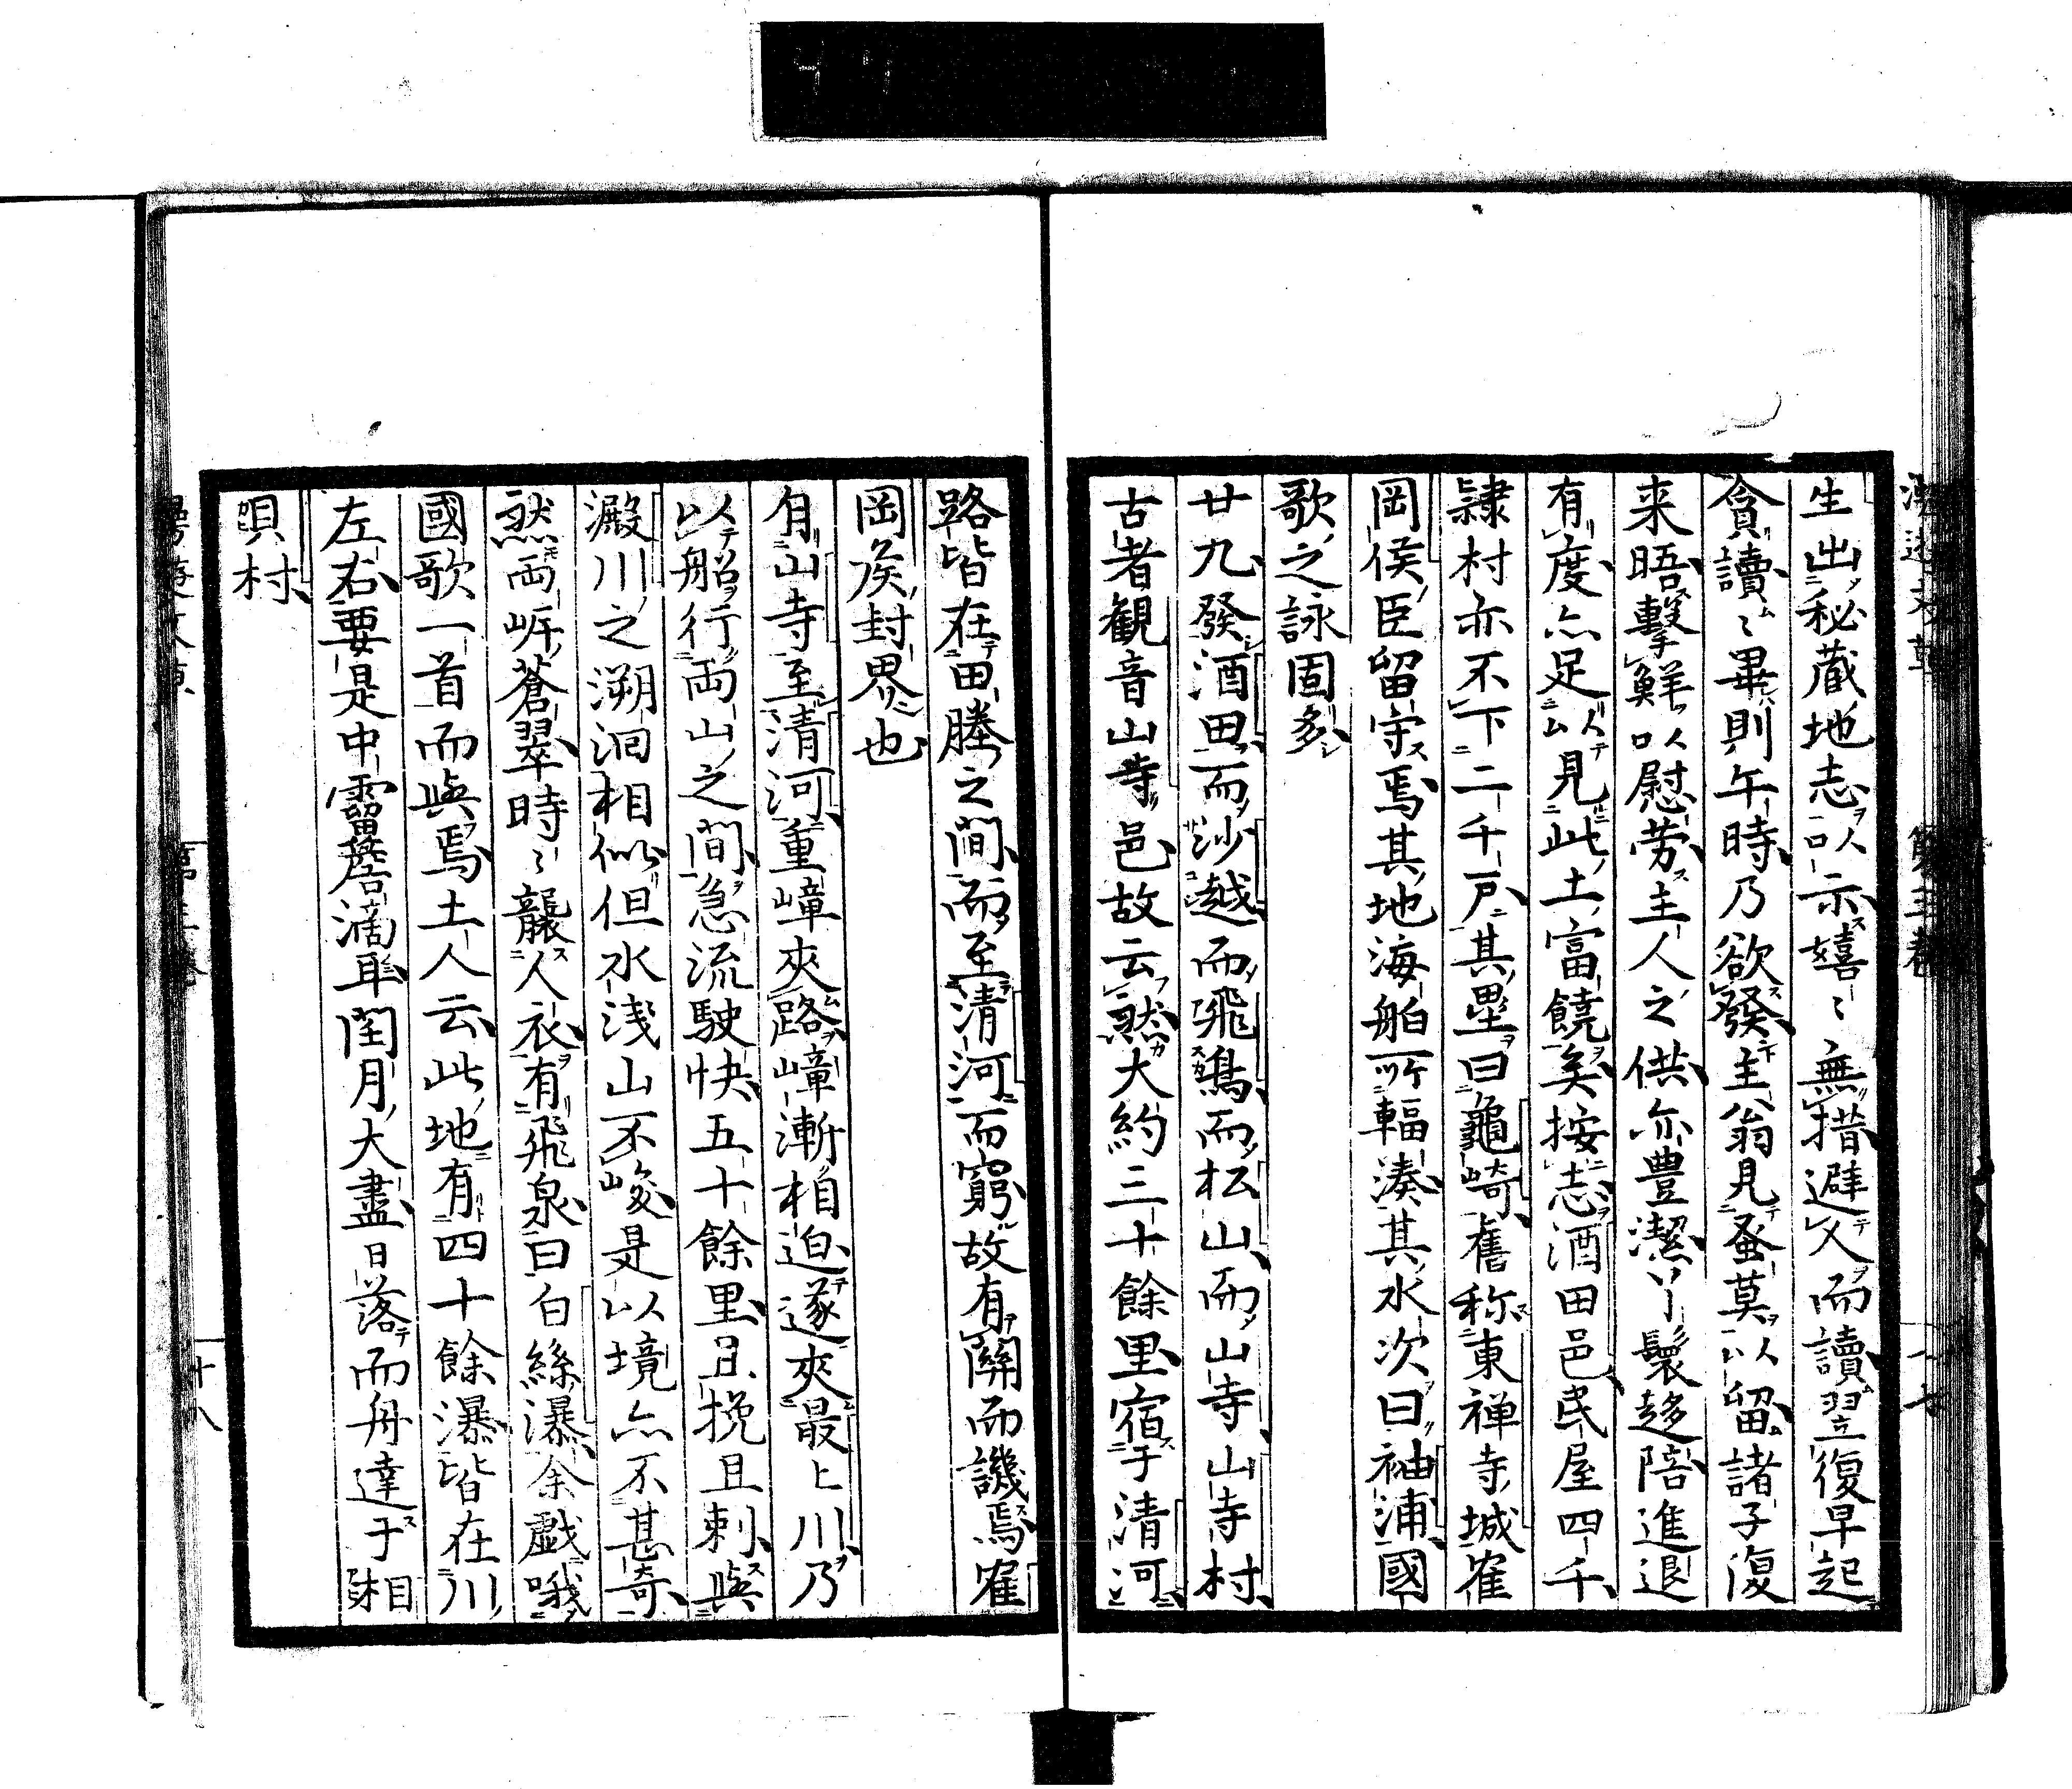 生出秘蔵地志以示嬉〻無措避人而讀翌復早起
貪讀〻畢則午時乃欲發主翁見蚤莫以留諸子復
来晤擊鮮以慰労主人之供亦豊潔丫鬟趍陪進退
有度亦足以見此土富饒矣按志酒田邑民屋四千
隷村亦不下二千戸其壘曰龜崎舊称東禅寺城隺
岡侯臣留守焉其地海舶所輻湊其水次曰袖浦國
歌之詠固多
廿九發酒田而沙越而飛鳥而松山而山寺山寺村
古者観音山寺邑故云然大約三十餘里宿于清河
路皆在田塍之間而至清河而窮故有關而譏焉隺
岡矦封界也
自山寺至清河重嶂夾路嶂漸相迫遂夾最上川乃
以船行両山之間急流駛快五十餘里且挽且刺與
澱川之溯洄相似但水浅山不峻是以境亦不甚奇
然両岈蒼翠時〻襲人衣有飛泉曰白絲瀑余戯哦
國歌一首而與焉土人云此地有四十餘瀑皆在川
左右要是中霤簷滴耳閏月大盡日落而舟達于相
唄村
十八